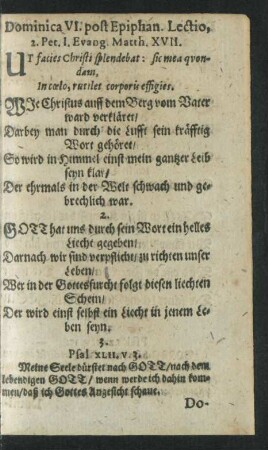 Dominica VI. post Epiphan. Lectio,
2. Pet. I. Evang. Matth. XVII.
UT facies Christi splendebat: sic mea qvon-
dam,
In cœlo, rutilet corporis effigies.
WJe Christus auff dem Berg vom Vater
ward verkläret/
Darbey man durch die Lufft sein kräfftig
Wort gehöret/
So wird in Himmel einst mein gantzer Leib
seyn klar/
Der ehrmals in der Welt schwach und ge-
brechlich war.
2.
GOTT hat uns durch sein Wort ein helles
Liecht gegeben/
Darnach wir sind verpflicht/ zu richten unser
Leben/
Wer in der Gottesfurcht folgt diesen liechten
Schein/
Der wird einst selbst ein Liecht in jenem Le-
ben seyn.
3.
Psal. XLII. v. 3.
Meine Seele dürstet nach GOTT/ nach dem
lebendigen GOTT/ wenn werde ich dahin kom-
men/ daß ich Gottes Angesicht schaue.
Do-